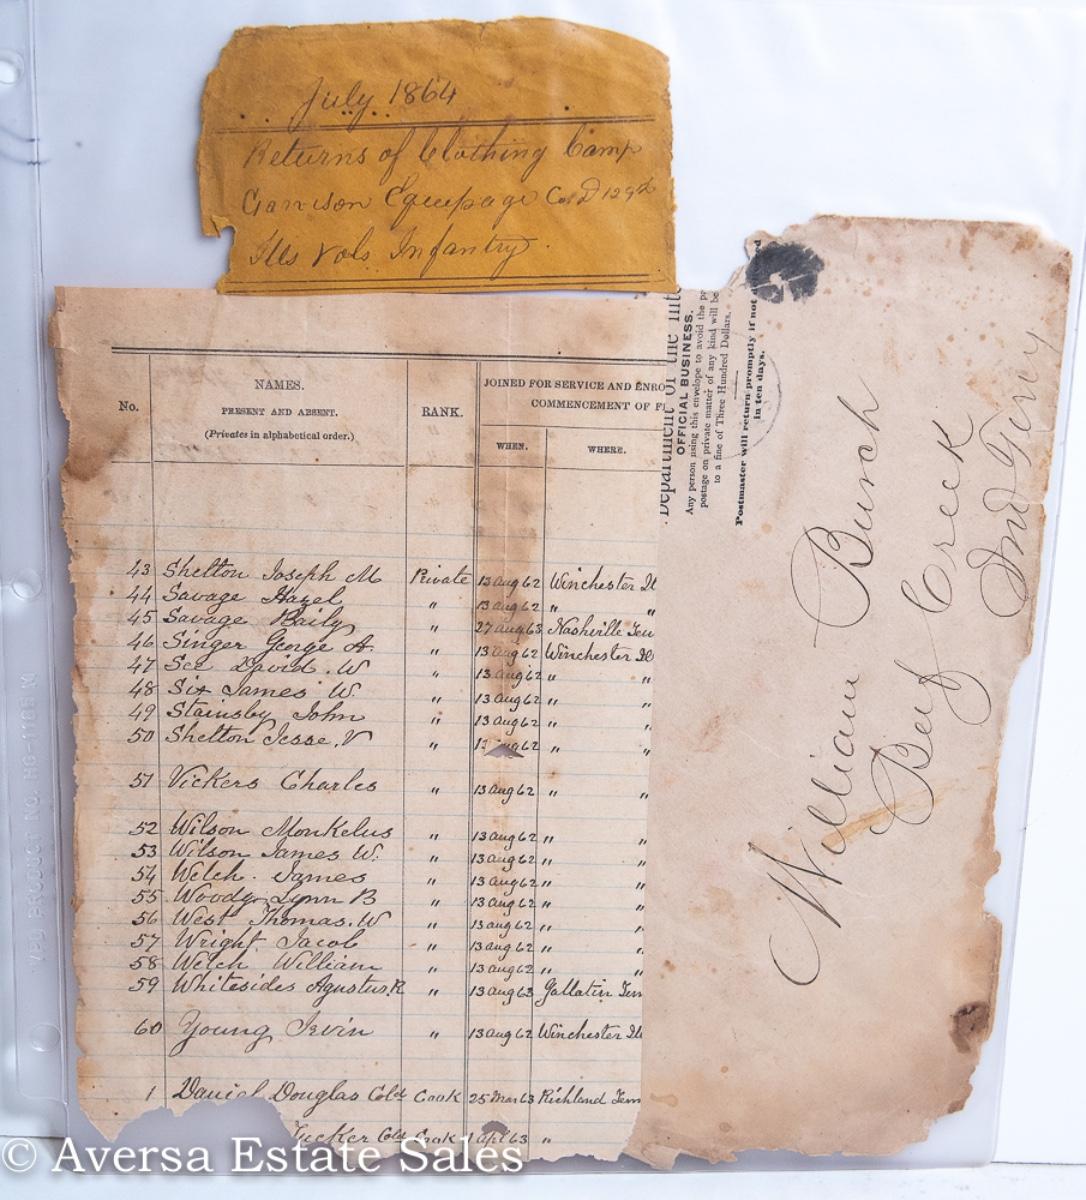 July 1864
Returns of Clothing Camp
Garrison Equipage Co D 129th
Ills Vols Infantry.
No.
NAMES.
PRESENT AND ABSENT.
(Privates in alphabetical order.)
RANK.
JOINED FOR SERVICE AND ENRO
COMMENCEMENT OF F
WHEN.
WHERE.
43 Shelton Joseph M Private 13 Aug 62 Winchester Il
44 Savage Hazel " 13 Aug 62 " "
45 Savage Baily " 27 Aug 63 Nashville Ten
46 Singer George A. " 13 Aug 62 Winchester Ill
47 See David. W " 13 Aug 62 " "
48 Six James W. " 13 Aug 62 " "
49 Stainsby John " 13 Aug 62 " "
50 Shelton Jesse. V " 13 Aug 62 " "
51 Vickers Charles " 13 Aug 62 " "
52 Wilson Monkelus " 13 Aug 62 " "
53 Wilson James W. " 13 Aug 62 " "
54 Welch. James " 13 Aug 62 " "
55 Woody, Lynn B " 13 Aug 62 " "
56 West Thomas. W " 13 Aug 62 " "
57 Wright. Jacob " 13 Aug 62 " "
58 Welch William " 13 Aug 62 " "
59 Whitesides Agustus. R " 13 Aug 63 Gallatin Tenn
60 Young Irvin " 13 Aug 62 Winchester Ill
1 Daniel Douglas Cold Cook 25 Mar 63 Richland Tenn
Tucker Cold Cook 1 Apl 63 "
Department of the Inte
OFFICIAL BUSINESS.
Any person using this envelope to avoid the p
postage on private matter of any kind will be
to a fine of Three Hundred Dollars.
Postmaster will return promptly if not d ed
in ten days.
William Bunch
Beef Creek
Ind Tery
VPD PRODUCT NO. MG-1185
© Aversa Estate Sales